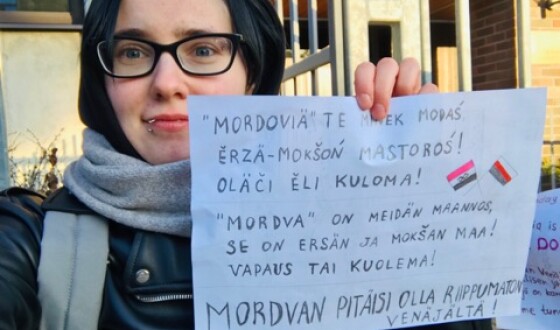 "MORDOVIÄ" TE MODAŚ
ĖRZÄ-MOKŠOŃ MASTOROŚ!
OLÄČI ĖLI KULOMA!
"MORDVA" ON MEIDÄN MAANNOS,
SE ON ERSÄN JA MOKŠAN MAA!
VAPAUS TAI KUOLEMA!
MORDVAN PITÄISI OLLA RIIPPUMATON
VENÄJÄLTÄ!
DO